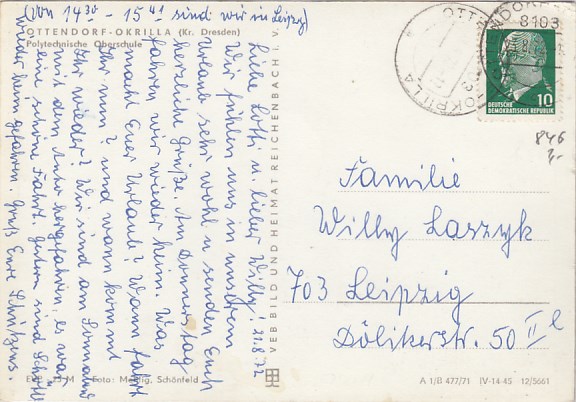 (von 14³⁰ - 15⁴¹ sind wir in Leipzig)
OTTENDORF-OKRILLA (Kr. Dresden)
Polytechnische Oberschule
Liebe Lotti u. lieber Willy! 21.8.72
Wir fühlen uns in unserem
Urlaub sehr wohl u. senden Euch
herzliche Grüße. Am Donnerstag
fahren wir wieder heim. Was
macht Euer Urlaub? Wann fahrt
Ihr nun? und wann kommt
Ihr wieder? Wir sind am
mit dem Auto hergefahren, es war
eine schöne Fahrt. Gestern sind
wieder heim gefahren. Gruß Eure
Foto: Schönfeld
VEB BILD UND HEIMAT REICHENBACH i. V.
A 1/B 477/71 IV-14-45 12/5661
OTTENDORF-OKRILLA
8103
10
DEUTSCHE
DEMOKRATISCHE REPUBLIK
846
Familie
Willy Laszyk
703 Leipzig
Dölitzerstr. 50 II l